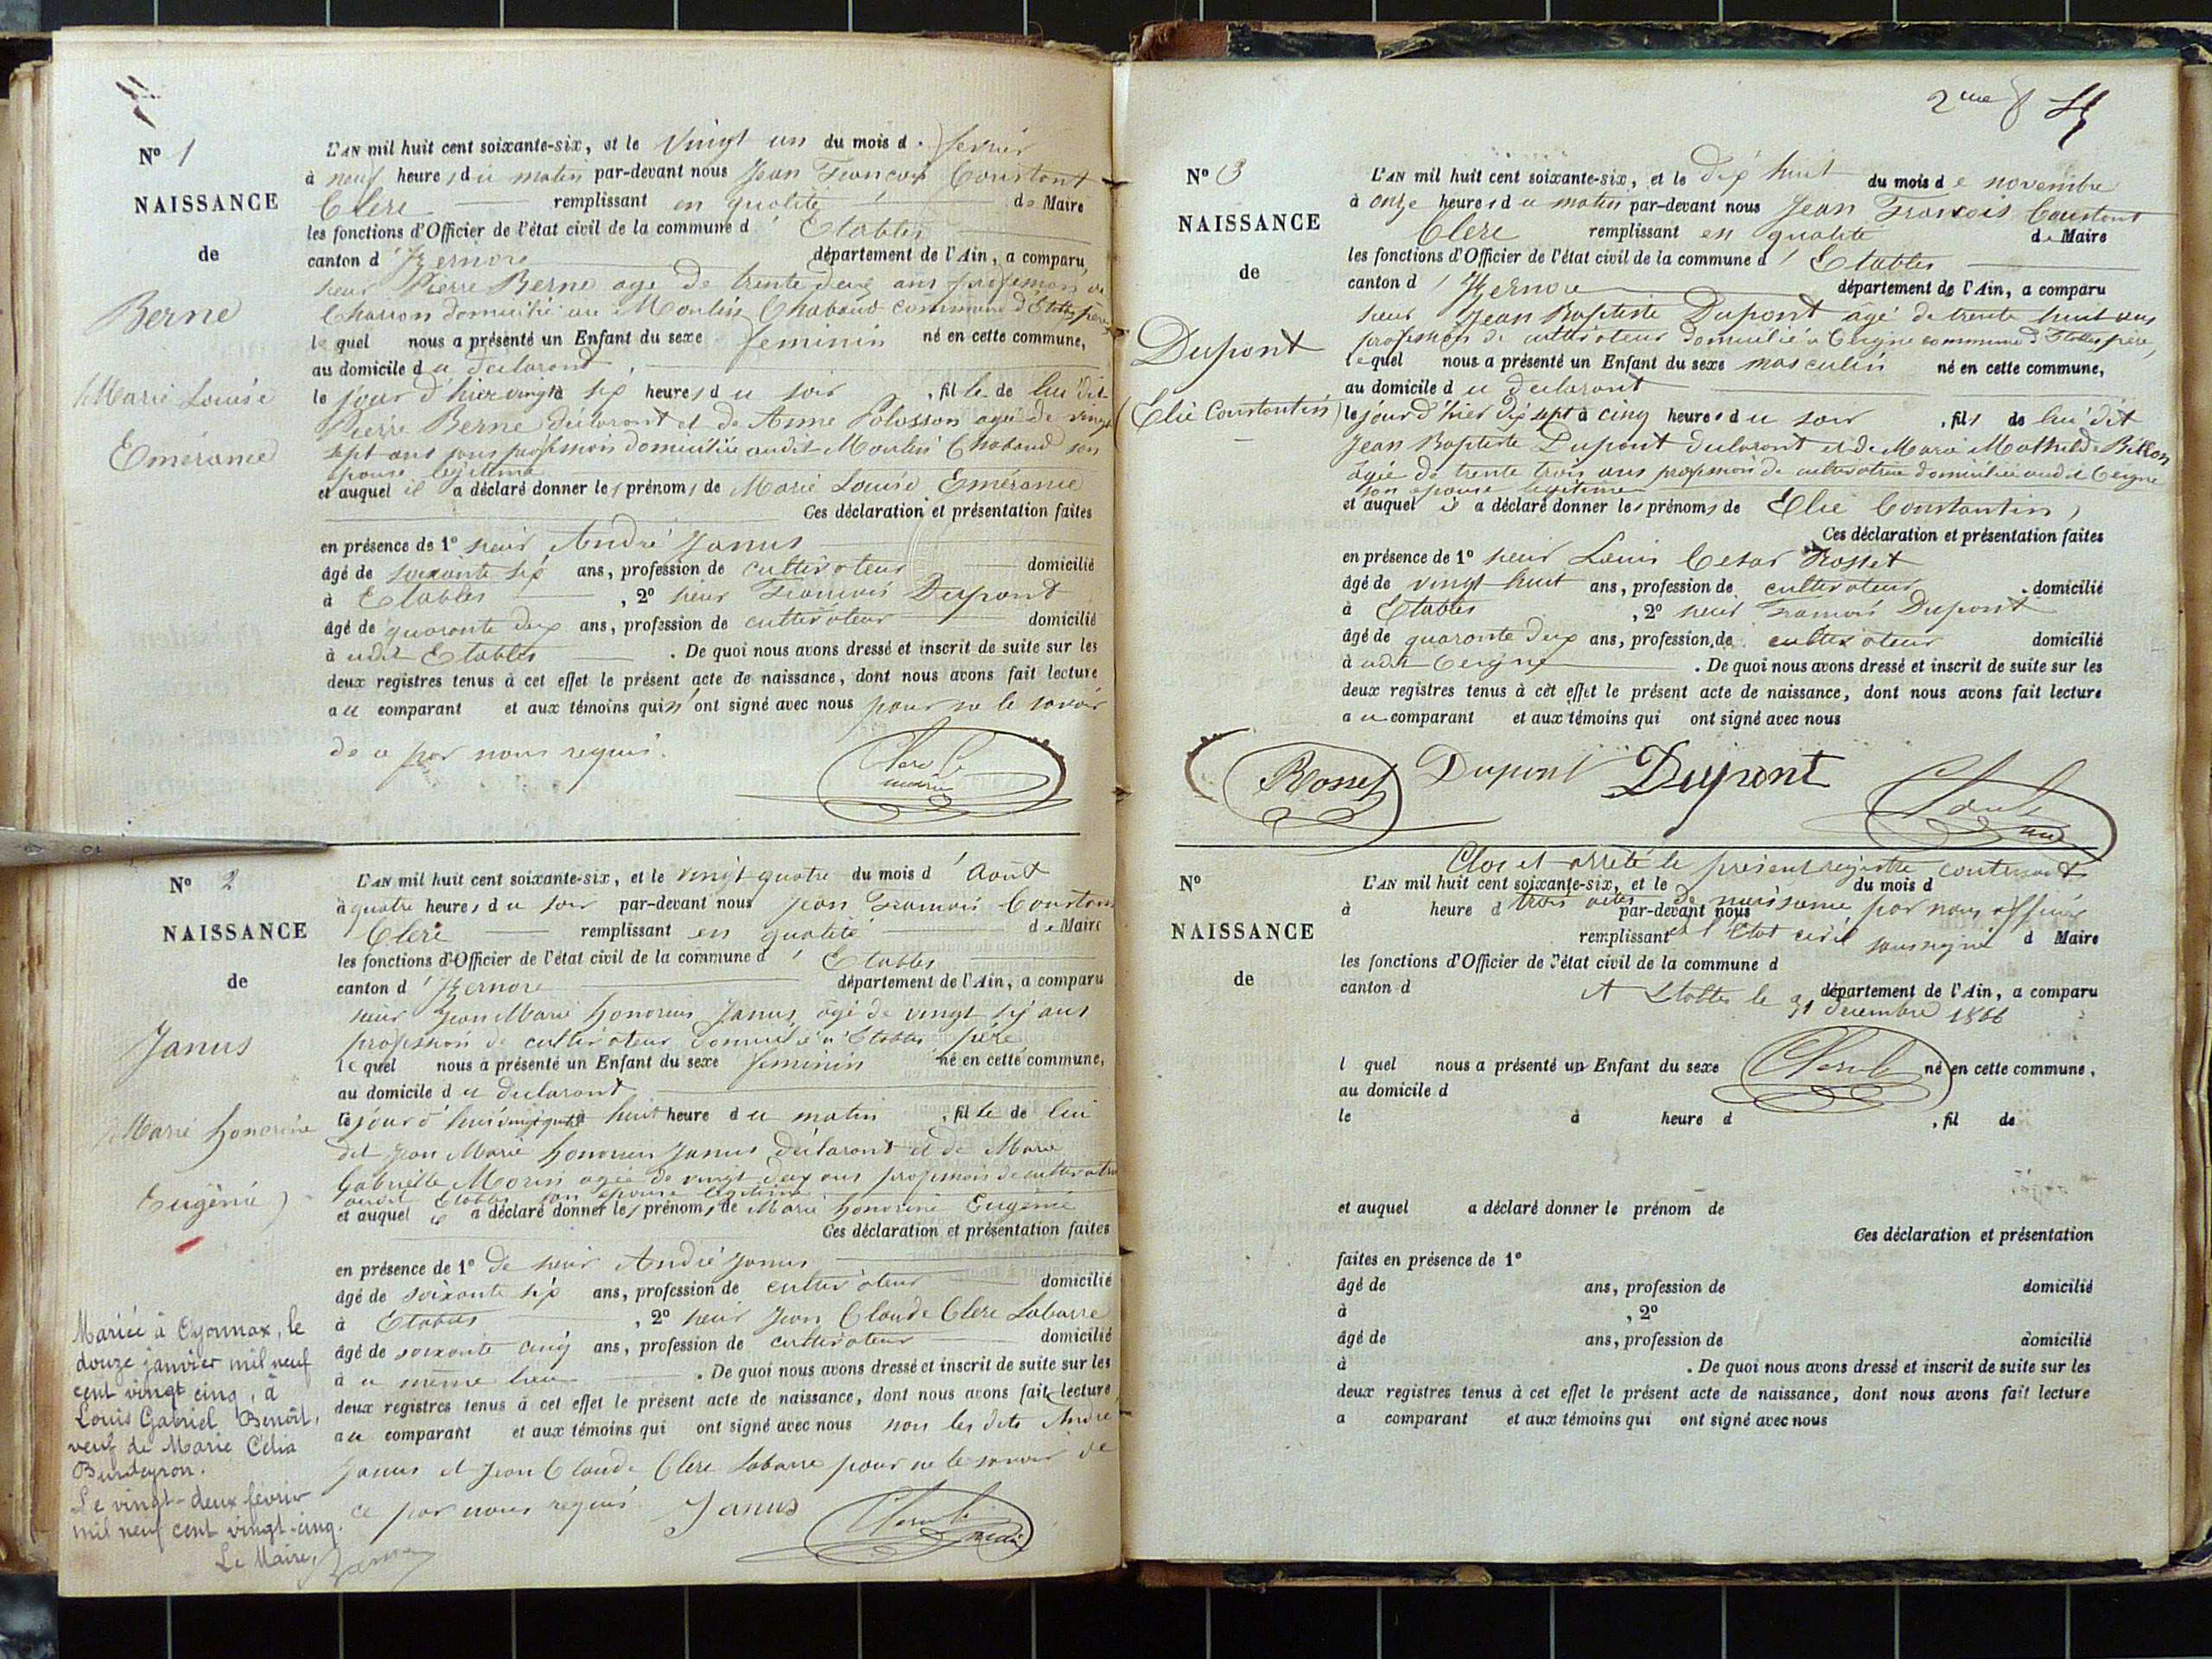 N° 1
NAISSANCE
de
Berne
Marie Louise
Emérance
L'AN mil huit cent soixante-six, et le vingt un du mois de fevrier
à neuf heures du matin par-devant nous Jean Francois Constant
Clere remplissant en qualité de Maire
les fonctions d'Officier de l'état civil de la commune d'Etables
canton d'Izernore département de l'Ain, a comparu,
sieur Pierre Berne age de trente deux ans profession de
Charron domicilié au Moulin Chabaud commune d'Etables père
lequel nous a présenté un Enfant du sexe feminin né en cette commune,
au domicile du declarant
le jour d'hier vingt à six heures du soir, fille de lui dit
Pierre Berne déclarant et de Anne Polosson agée de vingt
sept ans sans profession domiciliée audit Moulin Chabaud son
epouse legitime
et auquel il a déclaré donner les prénoms de Marie Louise Emérance
Ces déclaration et présentation faites
en présence de 1° sieur André Janus
âgé de soixante six ans, profession de cultivateur domicilié
à Etables, 2° sieur Francois Dupont
âgé de quarante deux ans, profession de cultivateur domicilié
à udit Etables. De quoi nous avons dressé et inscrit de suite sur les
deux registres tenus à cet effet le présent acte de naissance, dont nous avons fait lecture
au comparant et aux témoins qui n'ont signé avec nous pour ne le savoir
de ce par nous requis.
Clere C
maire
N° 2
NAISSANCE
de
Janus
Marie honorine
Eugénie
L'AN mil huit cent soixante-six, et le vingt quatre du mois d'Août
à quatre heures du soir par-devant nous Jean Francois Constant
Clere remplissant en qualité de Maire
les fonctions d'Officier de l'état civil de la commune d'Etables
canton d'Izernore département de l'Ain, a comparu
sieur Jean Marie honorius Janus âgé de vingt six ans
profession de cultivateur domicilié à Etables père
lequel nous a présenté un Enfant du sexe feminin né en cette commune,
au domicile du declarant
le jour d'hui vingt quatre à huit heure du matin, fille de lui
dit Jean Marie honorius Janus declarant et de Marie
Gabrielle Morin agée de vingt deux ans profession de cultivatrice
audit Etables son epouse legitime
et auquel il a déclaré donner les prénoms de Marie honorine Eugénie
Ces déclaration et présentation faites
en présence de 1° de sieur André Janus
âgé de soixante six ans, profession de cultivateur domicilié
à Etables, 2° sieur Jean Claude Clere Labarre
âgé de soixante cinq ans, profession de cultivateur domicilié
à u même lieu. De quoi nous avons dressé et inscrit de suite sur les
deux registres tenus à cet effet le présent acte de naissance, dont nous avons fait lecture
au comparant et aux témoins qui ont signé avec nous non les dits André
Janus et Jean Claude Clere Labarre pour ne le savoir de
ce par nous requis. Janus
Clere C
maire
Mariée à Oyonnax, le
douze janvier mil neuf
cent vingt cinq, à
Louis Gabriel Benoît,
veuf de Marie Célia
Burdeyron.
Le vingt-deux fevrier
mil neuf cent vingt-cinq.
Le Maire,
2me
N° 3
NAISSANCE
de
Dupont
(Elie Constantin)
L'AN mil huit cent soixante-six, et le dix huit du mois de novembre
à onze heures du matin par-devant nous Jean Francois Constant
Clere remplissant en qualité de Maire
les fonctions d'Officier de l'état civil de la commune d'Etables
canton d'Izernore département de l'Ain, a comparu
sieur Jean Baptiste Dupont âgé de trente huit ans
profession de cultivateur domicilié à Ceigne commune d'Etables père,
lequel nous a présenté un Enfant du sexe masculin né en cette commune,
au domicile du declarant
le jour d'hier dix sept à cinq heures du soir, fils de lui dit
Jean Baptiste Dupont declarant et de Marie Mathilde Billon
âgée de trente trois ans profession de cultivatrice domiciliée audit Ceigne
son epouse legitime
et auquel il a déclaré donner les prénoms de Elie Constantin
Ces déclaration et présentation faites
en présence de 1° sieur Louis Cesar Rosset
âgé de vingt huit ans, profession de cultivateur. domicilié
à Etables, 2° sieur Francois Dupont
âgé de quarante deux ans, profession de cultivateur domicilié
à udit Ceigne. De quoi nous avons dressé et inscrit de suite sur les
deux registres tenus à cet effet le présent acte de naissance, dont nous avons fait lecture
au comparant et aux témoins qui ont signé avec nous
Rosset Dupont Dupont Clere C
maire
Clos et arrêté le présent registre contenant
trois actes de naissance par nous officier
de l'Etat civil soussigné
A Etables le 31 décembre 1866
Clere C
N°
NAISSANCE
de
L'AN mil huit cent soixante-six, et le du mois d
à heure d par-devant nous
remplissant d Maire
les fonctions d'Officier de l'état civil de la commune d
canton d département de l'Ain, a comparu
l quel nous a présenté un Enfant du sexe né en cette commune,
au domicile d
le à heure d , fil de
et auquel a déclaré donner le prénom de
Ces déclaration et présentation
faites en présence de 1°
âgé de ans, profession de domicilié
à , 2°
âgé de ans, profession de domicilié
à . De quoi nous avons dressé et inscrit de suite sur les
deux registres tenus à cet effet le présent acte de naissance, dont nous avons fait lecture
a comparant et aux témoins qui ont signé avec nous